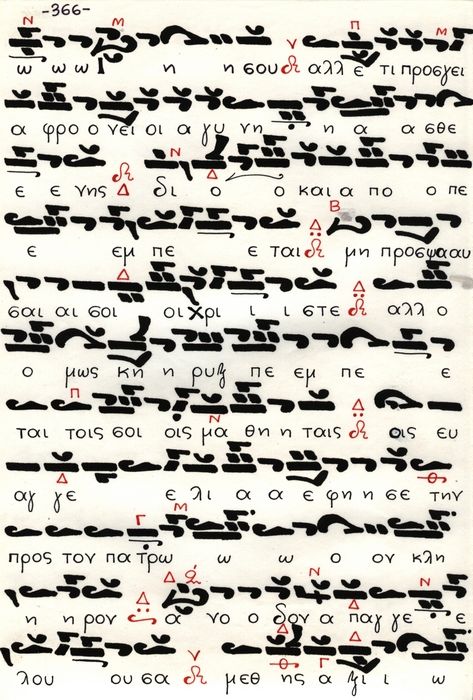 -366-
ω ω ω η η σου αλλ ε τι προσγει
α φρο ο νει οι α γυ νη η α α σθε
ε ε νης δι ο ο και α πο ο πε
ε εμ πε ε ται μη προσψααυ
σαι αι σοι οι χρι ι ι στε αλλ ο
ο μως κη η ρυξ πε εμ πε ε
ται τοις σοι οις μα θη η ταις οις ευ
αγ γε ε λι α α ε φη η σε την
προς τον πα τρω ω ω ο ον κλη
η η ρον α νο ο δον α παγ γε ε
λου ου σα μεθ ης α ξι ι ω